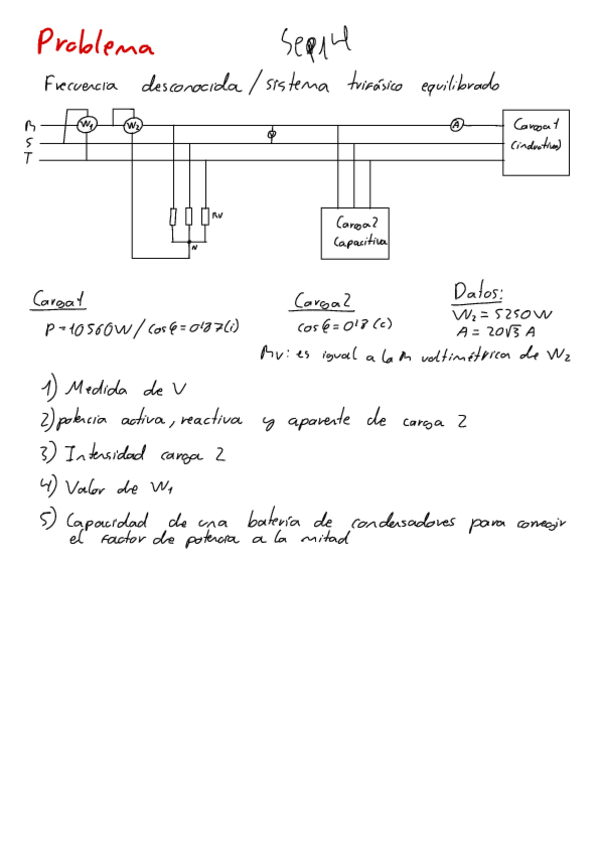 Problema Sep14
Frecuencia desconocida / sistema trifásico equilibrado
R W1 W2 A Carga1
S (inductiva)
T
RV
N
Carga2
Capacitiva
Carga1 Carga2 Datos:
P=10560W / cosφ=0'87(i) cosφ=0'8 (c) W2=5250W
A=20√3 A
RV: es igual a la R voltimétrica de W2
1) Medida de V
2) potencia activa, reactiva y aparente de carga 2
3) Intensidad carga 2
4) Valor de W1
5) Capacidad de una batería de condensadores para corregir
el factor de potencia a la mitad